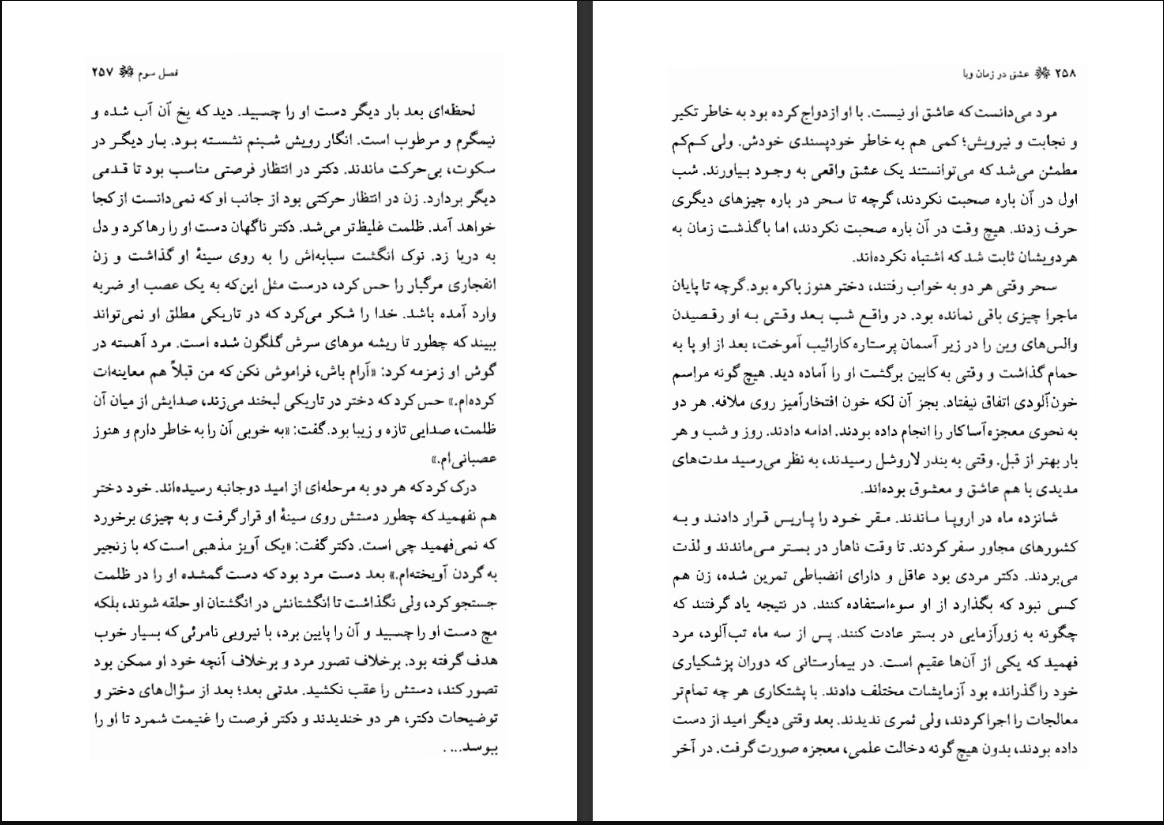 فصل سوم ۲۵۷
لحظه‌ای بعد بار دیگر دست او را چسبید. دید که یخ آن آب شده و
نیمگرم و مرطوب است. انگار رویش شبنم نشسته بود. بار دیگر در
سکوت، بی‌حرکت ماندند. دکتر در انتظار فرصتی مناسب بود تا قدمی
دیگر بردارد. زن در انتظار حرکتی بود از جانب او که نمی‌دانست از کجا
خواهد آمد. ظلمت غلیظ‌تر می‌شد. دکتر ناگهان دست او را رها کرد و دل
به دریا زد. نوک انگشت سبابه‌اش را به روی سینهٔ او گذاشت و زن
انفجاری مرگبار را حس کرد، درست مثل این‌که به یک عصب او ضربه
وارد آمده باشد. خدا را شکر می‌کرد که در تاریکی مطلق او نمی‌تواند
ببیند که چطور تا ریشه موهای سرش گلگون شده است. مرد آهسته در
گوش او زمزمه کرد: «آرام باش، فراموش نکن که من قبلاً هم معاینه‌ات
کرده‌ام.» حس کرد که دختر در تاریکی لبخند می‌زند، صدایش از میان آن
ظلمت، صدایی تازه و زیبا بود. گفت: «به خوبی آن را به خاطر دارم و هنوز
عصبانی‌ام.»
درک کرد که هر دو به مرحله‌ای از امید دوجانبه رسیده‌اند. خود دختر
هم نفهمید که چطور دستش روی سینهٔ او قرار گرفت و به چیزی برخورد
که نمی‌فهمید چی است. دکتر گفت: «یک آویز مذهبی است که با زنجیر
به گردن آویخته‌ام.» بعد دست مرد بود که دست گمشده او را در ظلمت
جستجو کرد، ولی نگذاشت تا انگشتانش در انگشتان او حلقه شوند، بلکه
مچ دست او را چسبید و آن را پایین برد، با نیرویی نامرئی که بسیار خوب
هدف گرفته بود. برخلاف تصور مرد و برخلاف آنچه خود او ممکن بود
تصور کند، دستش را عقب نکشید. مدتی بعد؛ بعد از سؤال‌های دختر و
توضیحات دکتر، هر دو خندیدند و دکتر فرصت را غنیمت شمرد تا او را
ببوسد... .
۲۵۸ عشق در زمان وبا
مرد می‌دانست که عاشق او نیست. با او ازدواج کرده بود به خاطر تکبر
و نجابت و نیرویش؛ کمی هم به خاطر خودپسندی خودش. ولی کم‌کم
مطمئن می‌شد که می‌توانستند یک عشق واقعی به وجود بیاورند. شب
اول در آن باره صحبت نکردند، گرچه تا سحر در باره چیزهای دیگری
حرف زدند. هیچ وقت در آن باره صحبت نکردند، اما با گذشت زمان به
هردویشان ثابت شد که اشتباه نکرده‌اند.
سحر وقتی هر دو به خواب رفتند، دختر هنوز باکره بود. گرچه تا پایان
ماجرا چیزی باقی نمانده بود. در واقع شب بعد وقتی به او رقصیدن
والس‌های وین را در زیر آسمان پرستاره کارائیب آموخت، بعد از او پا به
حمام گذاشت و وقتی به کابین برگشت او را آماده دید. هیچ گونه مراسم
خون‌آلودی اتفاق نیفتاد. بجز آن لکه خون افتخارآمیز روی ملافه. هر دو
به نحوی معجزه‌آسا کار را انجام داده بودند. ادامه دادند. روز و شب و هر
بار بهتر از قبل. وقتی به بندر لاروشل رسیدند، به نظر می‌رسید مدت‌های
مدیدی با هم عاشق و معشوق بوده‌اند.
شانزده ماه در اروپا ماندند. مقر خود را پاریس قرار دادند و به
کشورهای مجاور سفر کردند. تا وقت ناهار در بستر می‌ماندند و لذت
می‌بردند. دکتر مردی بود عاقل و دارای انضباطی تمرین شده، زن هم
کسی نبود که بگذارد از او سوءاستفاده کنند. در نتیجه یاد گرفتند که
چگونه به زورآزمایی در بستر عادت کنند. پس از سه ماه تب‌آلود، مرد
فهمید که یکی از آن‌ها عقیم است. در بیمارستانی که دوران پزشکیاری
خود را گذرانده بود آزمایشات مختلف دادند. با پشتکاری هر چه تمام‌تر
معالجات را اجرا کردند، ولی ثمری ندیدند. بعد وقتی دیگر امید از دست
داده بودند، بدون هیچ گونه دخالت علمی، معجزه صورت گرفت. در آخر